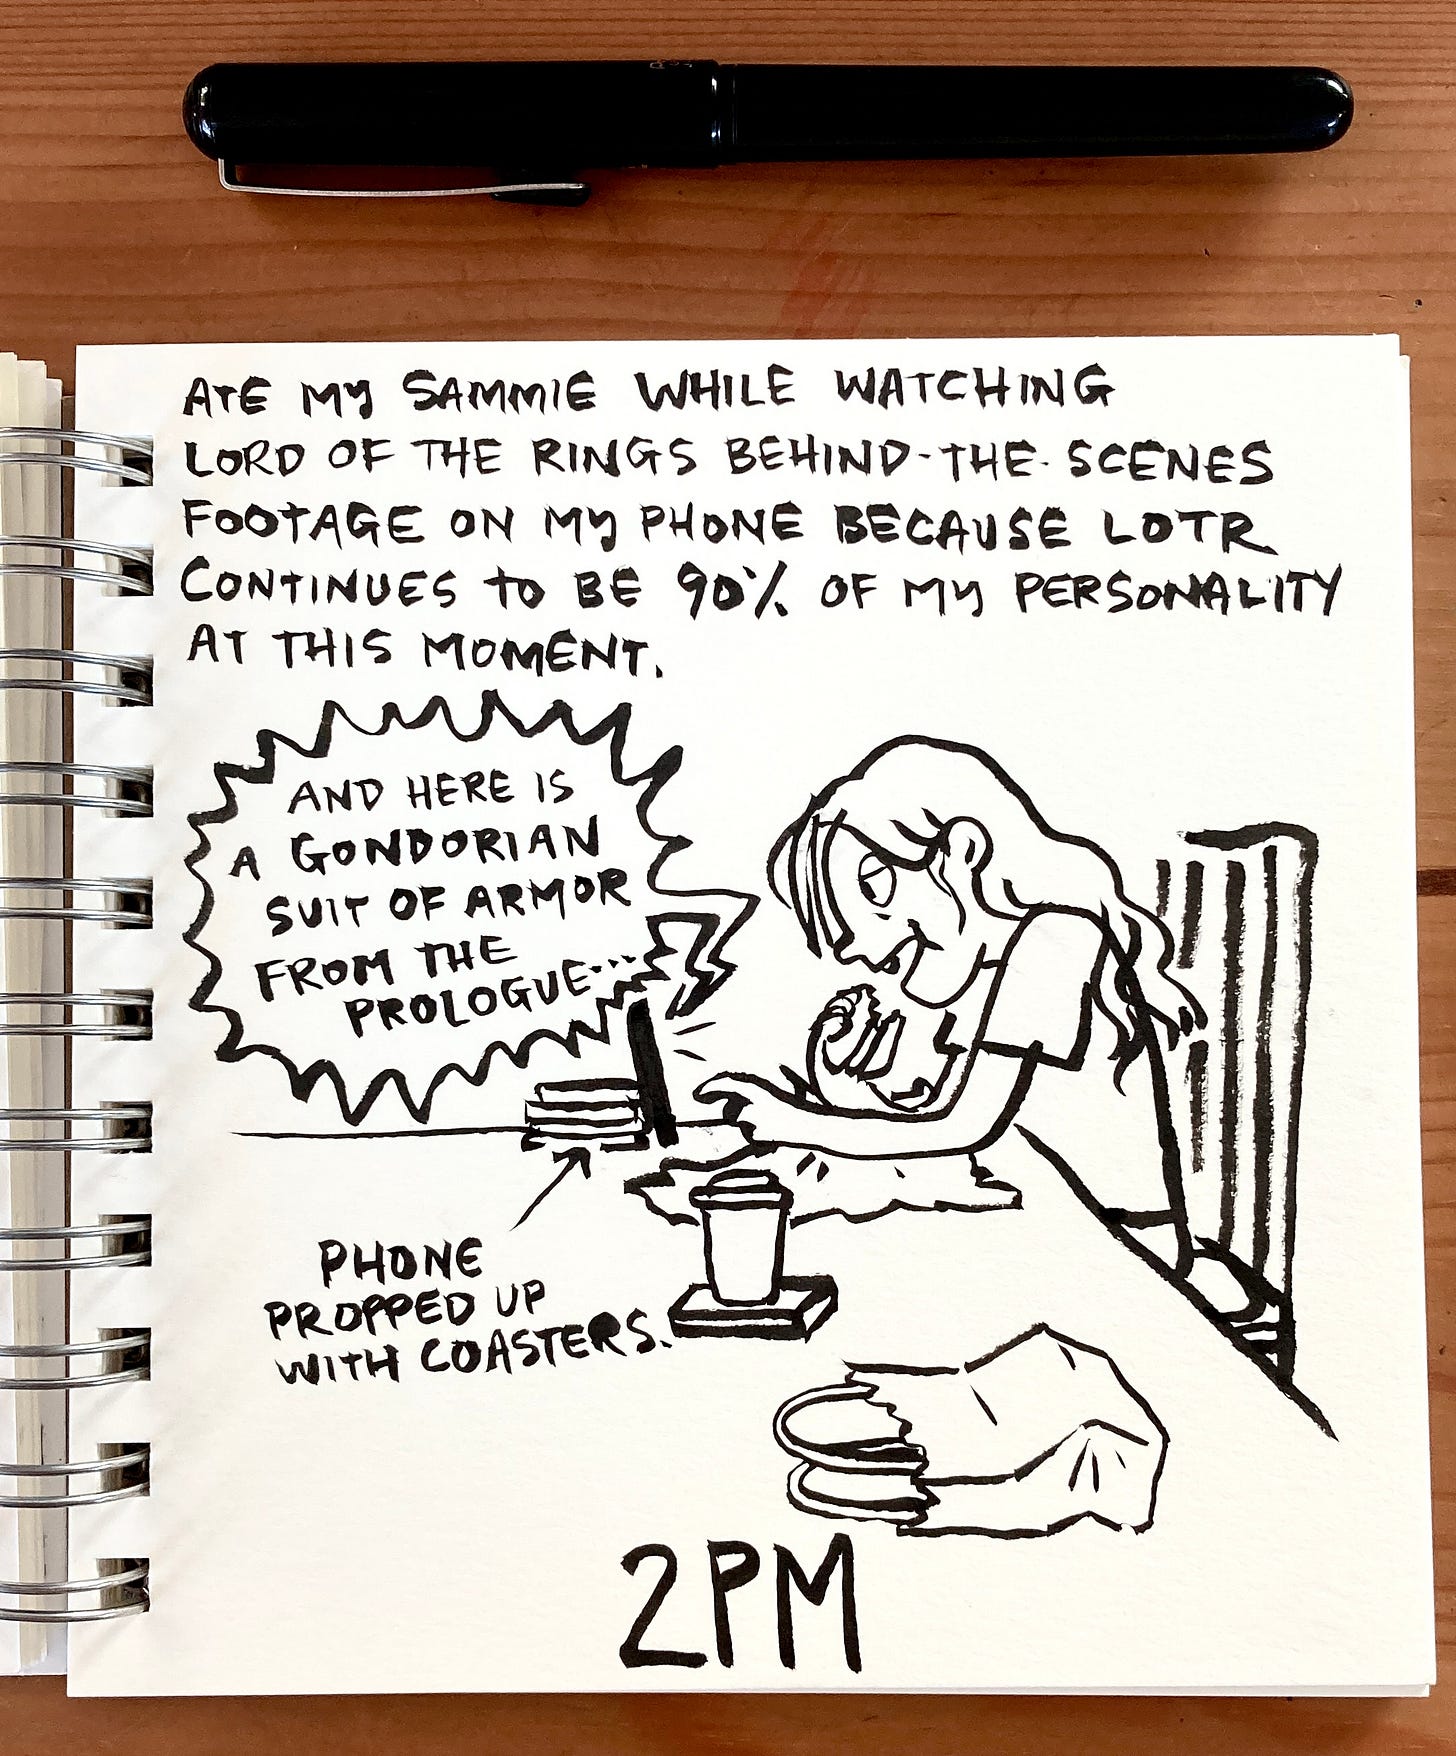 ATE MY SAMMIE WHILE WATCHING
LORD OF THE RINGS BEHIND-THE-SCENES
FOOTAGE ON MY PHONE BECAUSE LOTR
CONTINUES TO BE 90% OF MY PERSONALITY
AT THIS MOMENT.
AND HERE IS
A GONDORIAN
SUIT OF ARMOR
FROM THE
PROLOGUE...
PHONE
PROPPED UP
WITH COASTERS.
2PM